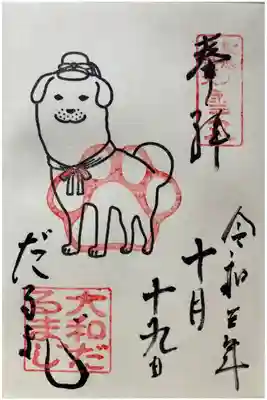 奉拝
令和 年
十月
十九日
だるまし
大和だ
るまし